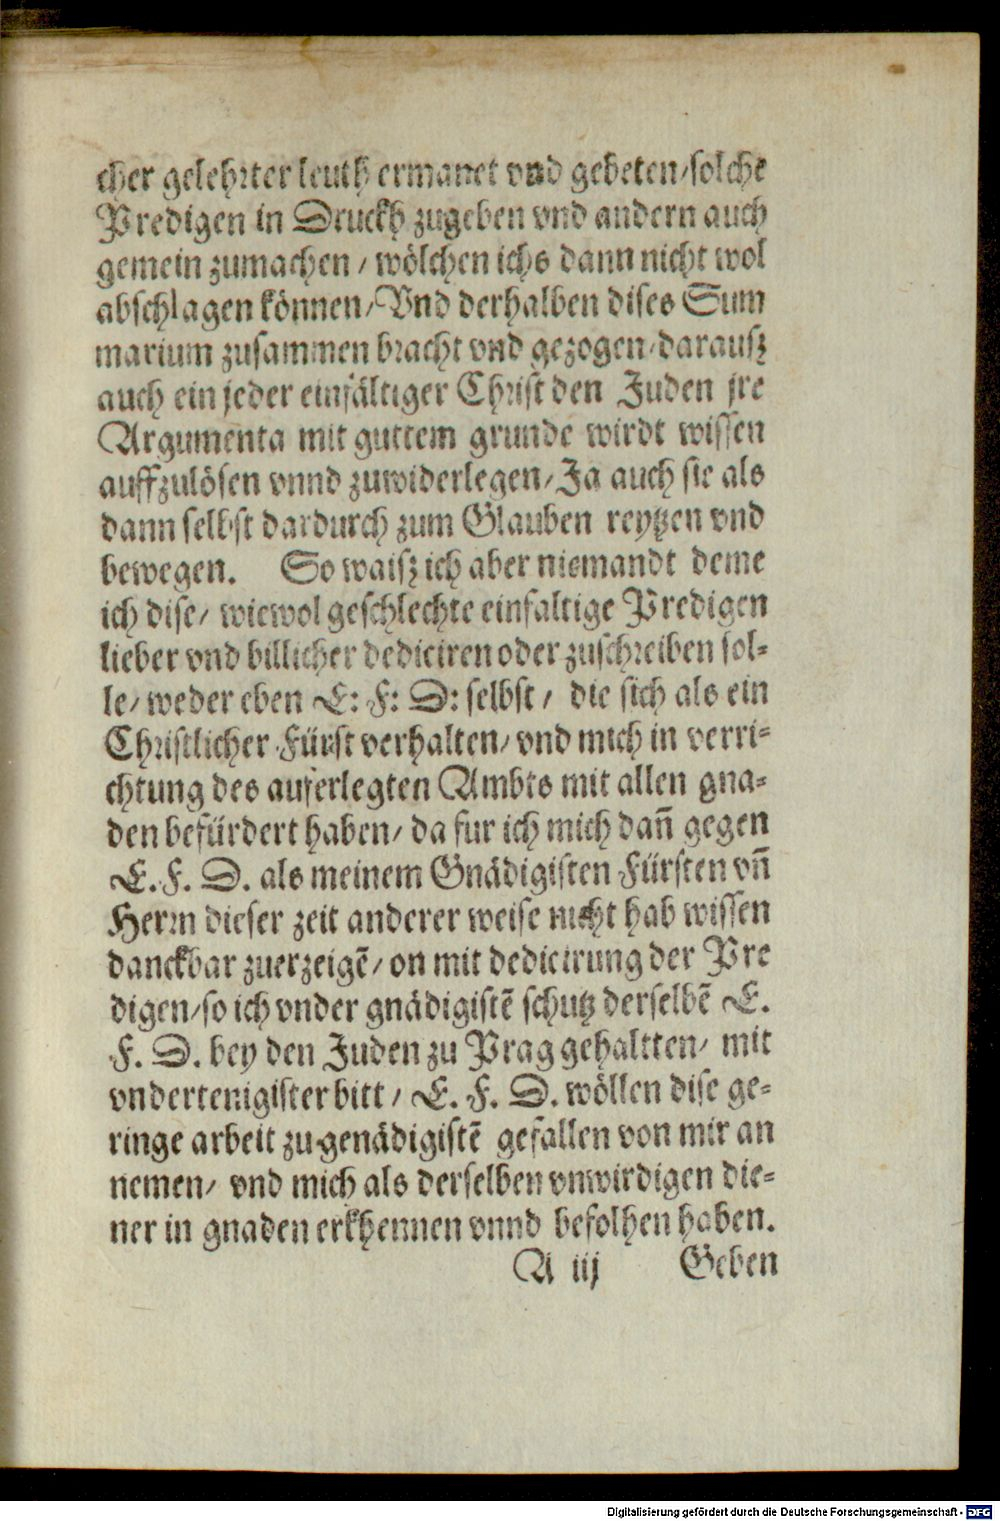 cher gelehrter leuth ermanet vnd gebeten/solche
Predigen in Druckh zugeben vnd andern auch
gemein zumachen / wölchen ichs dann nicht wol
abschlagen können/Vnd derhalben dises Sum
marium zusammen bracht vnd gezogen/darausz
auch ein jeder einfältiger Christ den Juden jre
Argumenta mit guttem grunde wirdt wissen
auffzulösen vnnd zuwiderlegen/Ja auch sie als
dann selbst dardurch zum Glauben reytzen vnd
bewegen. So waisz ich aber niemandt deme
ich dise/ wiewol geschlechte einfaltige Predigen
lieber vnd billicher dediciren oder zuschreiben sol-
le/ weder eben E: F: D: selbst / die sich als ein
Christlicher Fürst verhalten/ vnd mich in verri-
chtung des auferlegten Ambts mit allen gna-
den befürdert haben/ da fur ich mich dañ gegen
E. F. D. als meinem Gnädigisten Fürsten vñ
Herrn dieser zeit anderer weise nicht hab wissen
danckbar zuerzeigẽ/ on mit dedicirung der Pre
digen/so ich vnder gnädigistẽ schutz derselbẽ E.
F. D. bey den Juden zu Prag gehaltten/ mit
vndertenigister bitt / E. F. D. wöllen dise ge-
ringe arbeit zu genädigistẽ gefallen von mir an
nemen/ vnd mich als derselben vnwirdigen die-
ner in gnaden erkhennen vnnd befolhen haben.
A iij Geben
Digitalisierung gefördert durch die Deutsche Forschungsgemeinschaft - DFG